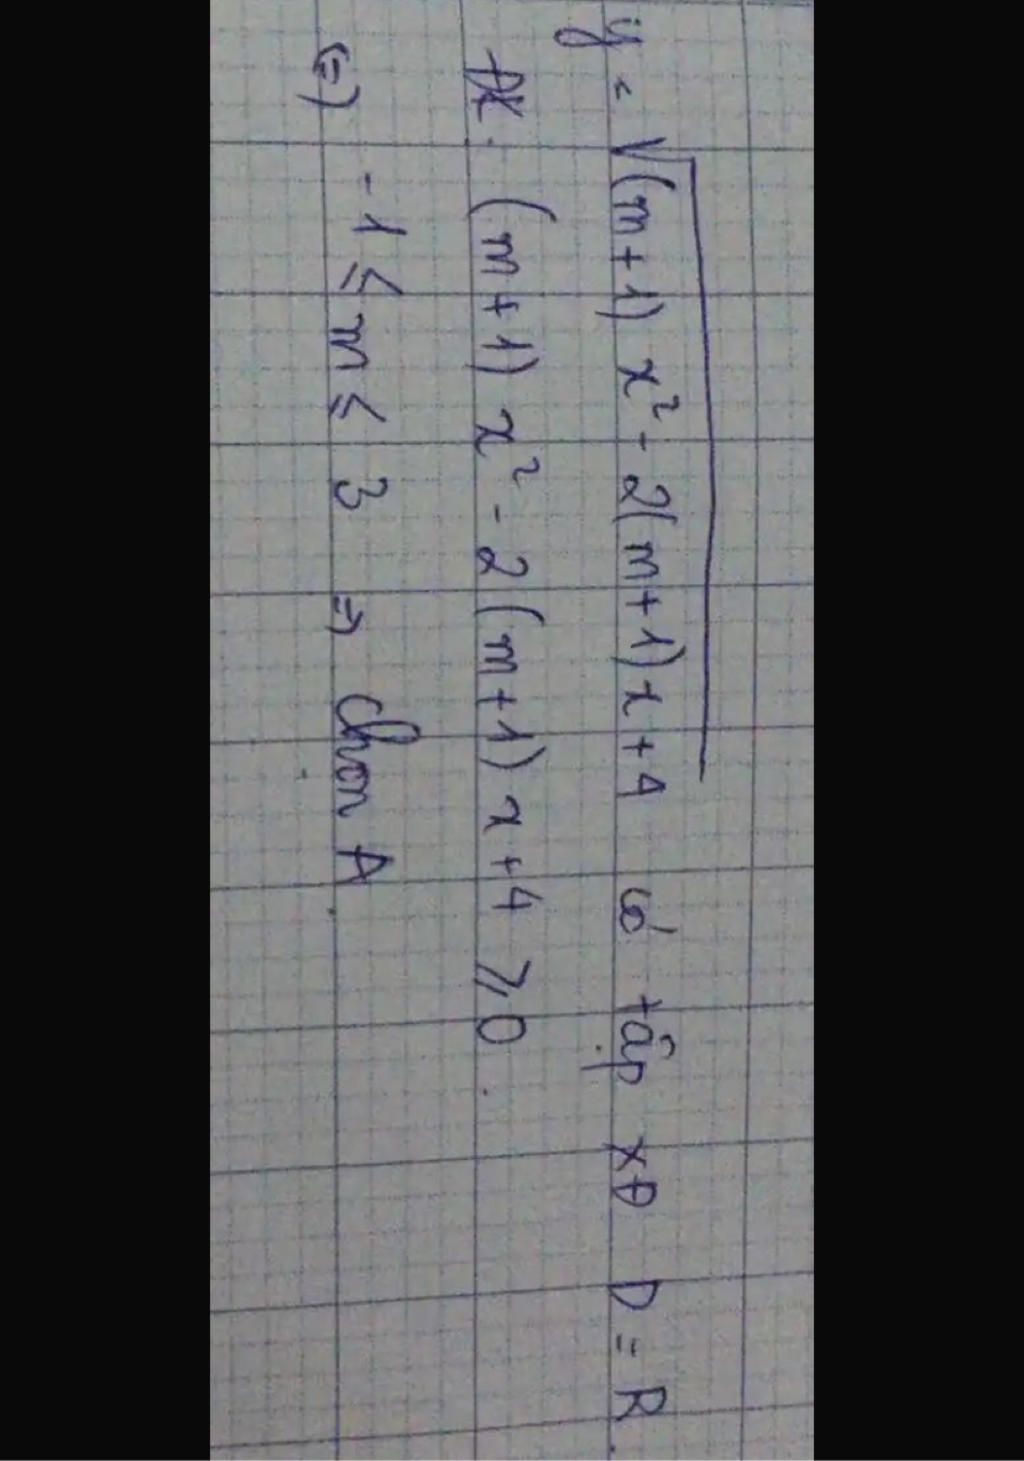 y = √(m+1) x² - 2(m+1)x + 4 có tập xĐ D = R.
ĐK: (m+1) x² - 2(m+1) x + 4 ⩾ 0.
(=) -1 ≤ m ≤ 3 => chọn A